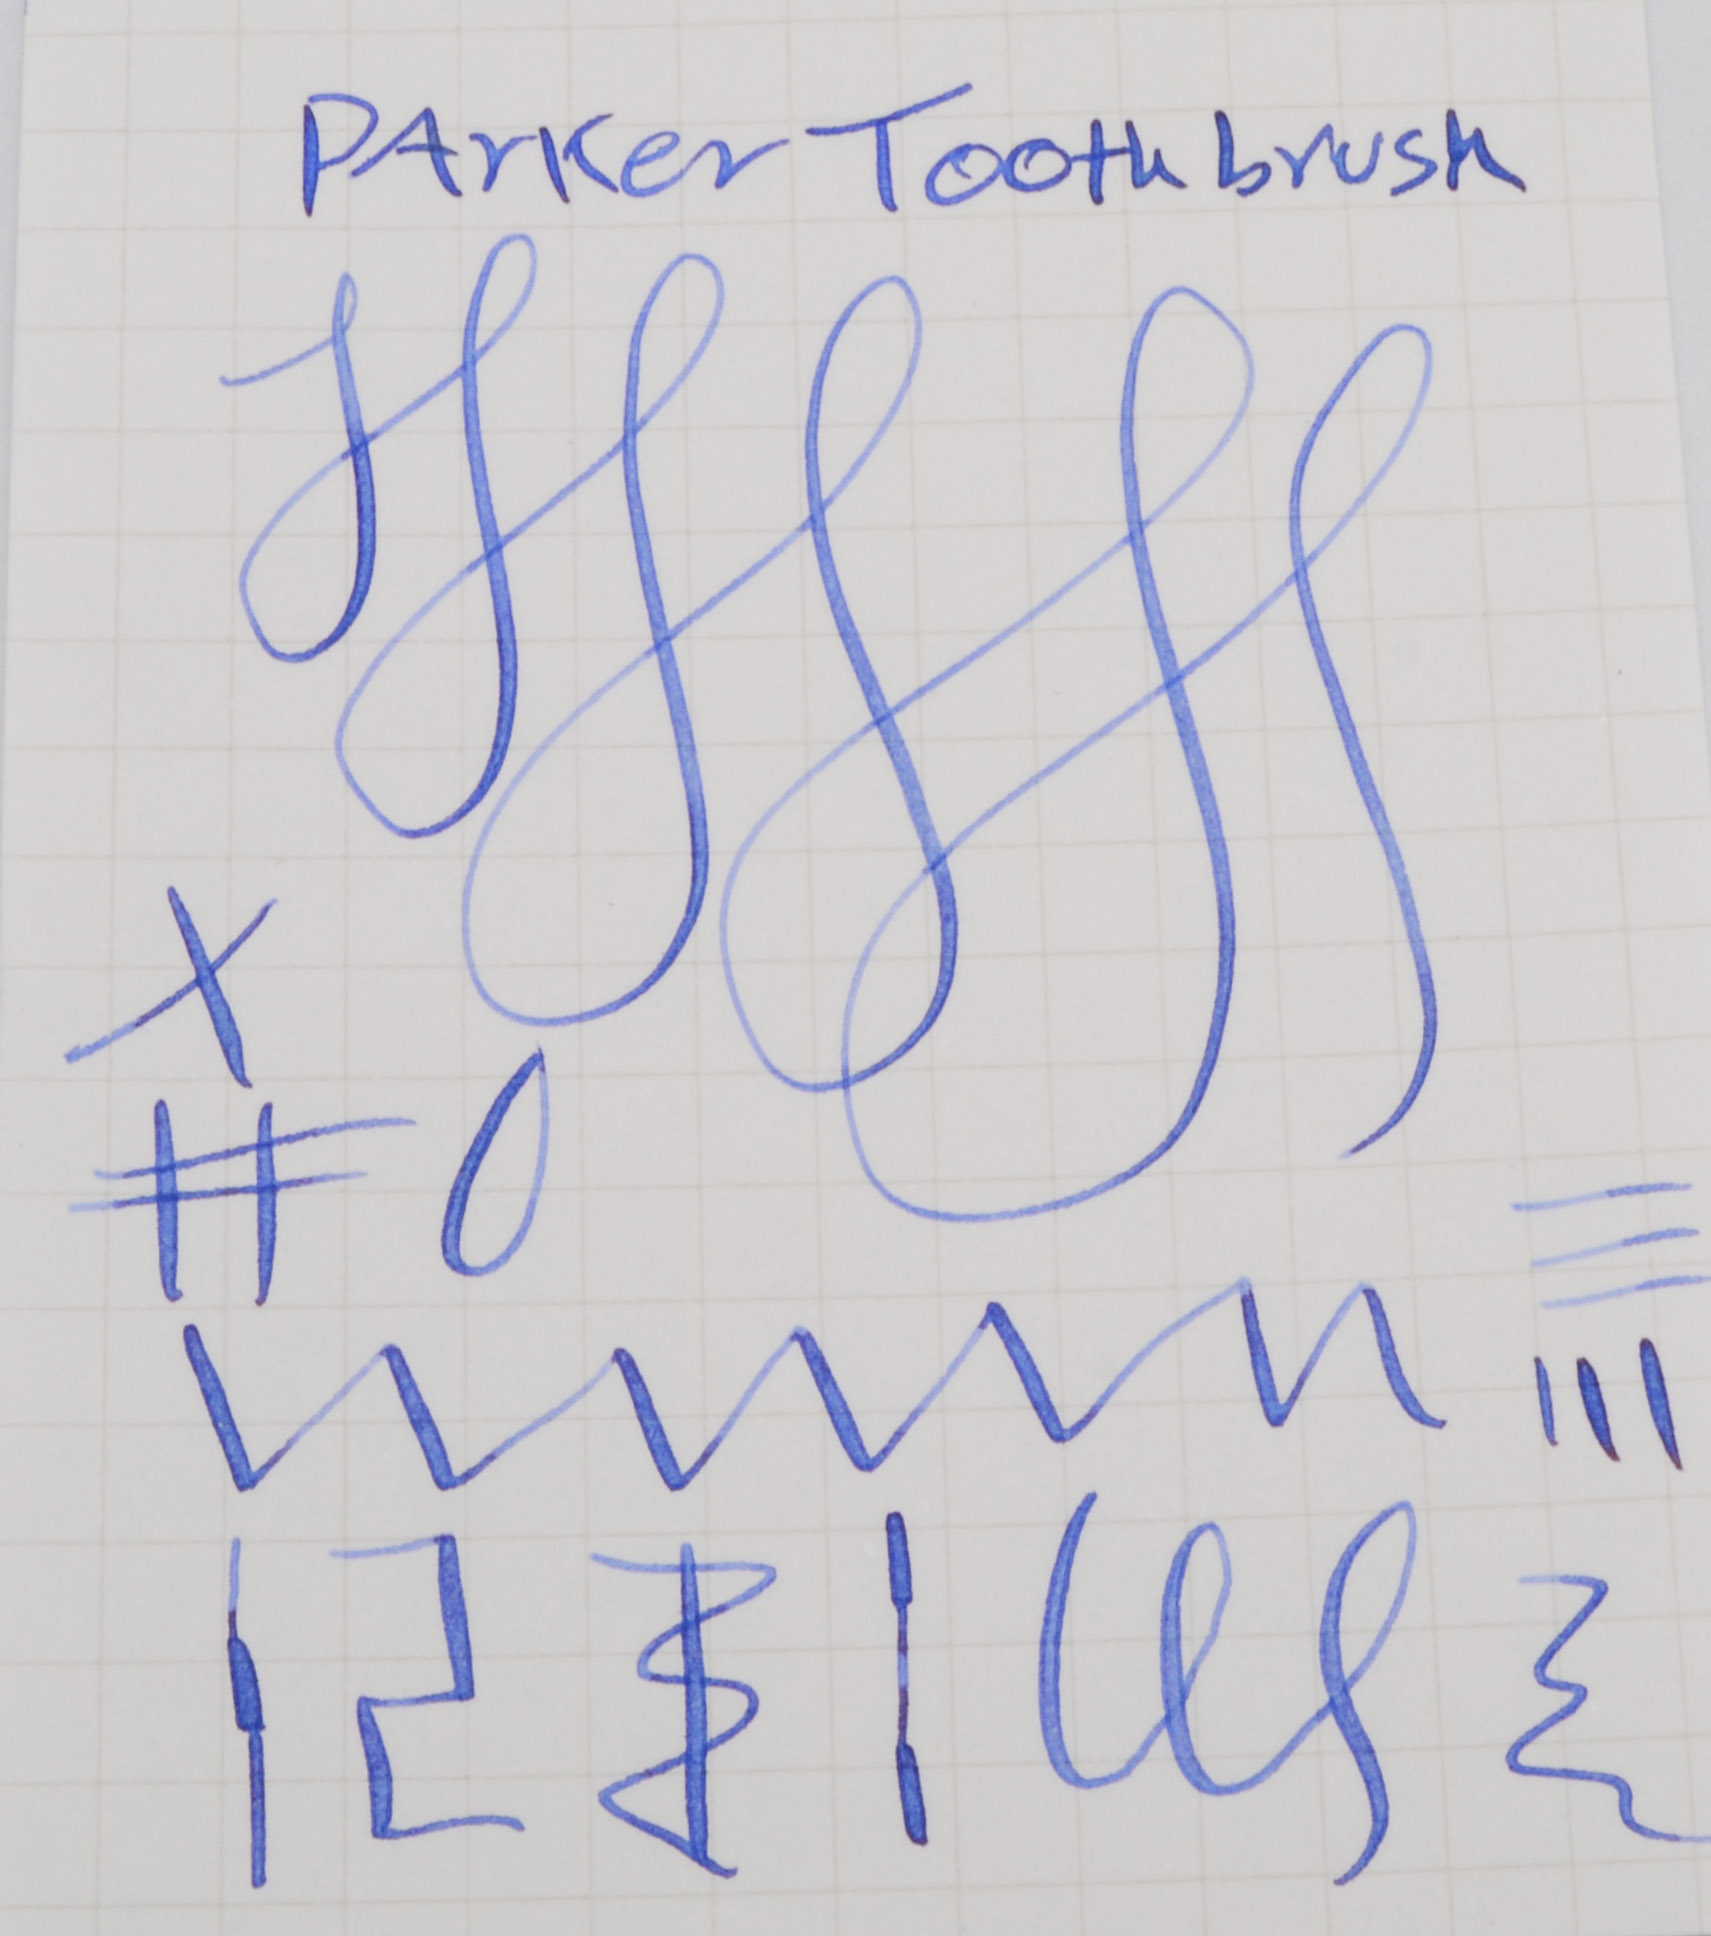 Parker Toothbrush